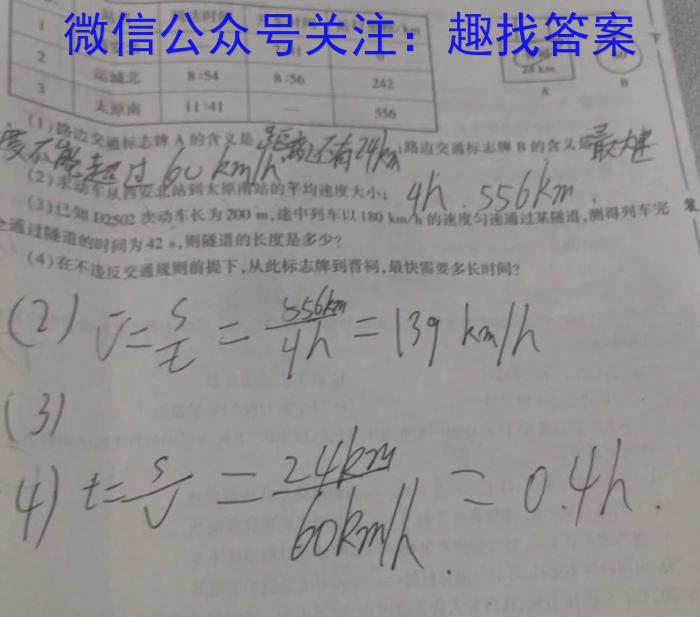 微信公众号关注：趣找答案
1
2
3
运城北 8:54 8:56 242
太原南 11:41 — 556
24 km
A
B
(1)路边交通标志牌 A 的含义是 距离还有24km;路边交通标志牌 B 的含义是 最大速
度不能超过 60 km/h
(2)求动车从西安北站到太原南站的平均速度大小; 4h.556km.
(3)已知 D2502 次动车长为 200 m,途中列车以 180 km/h 的速度匀速通过某隧道,测得列车完
全通过隧道的时间为 42 s,则隧道的长度是多少?
(4)在不违反交通规则前提下,从此标志牌到晋祠,最快需要多长时间?
(2) v=s/t=556km/4h=139 km/h
(3)
4) t=s/v=24km/60km/h=0.4h.